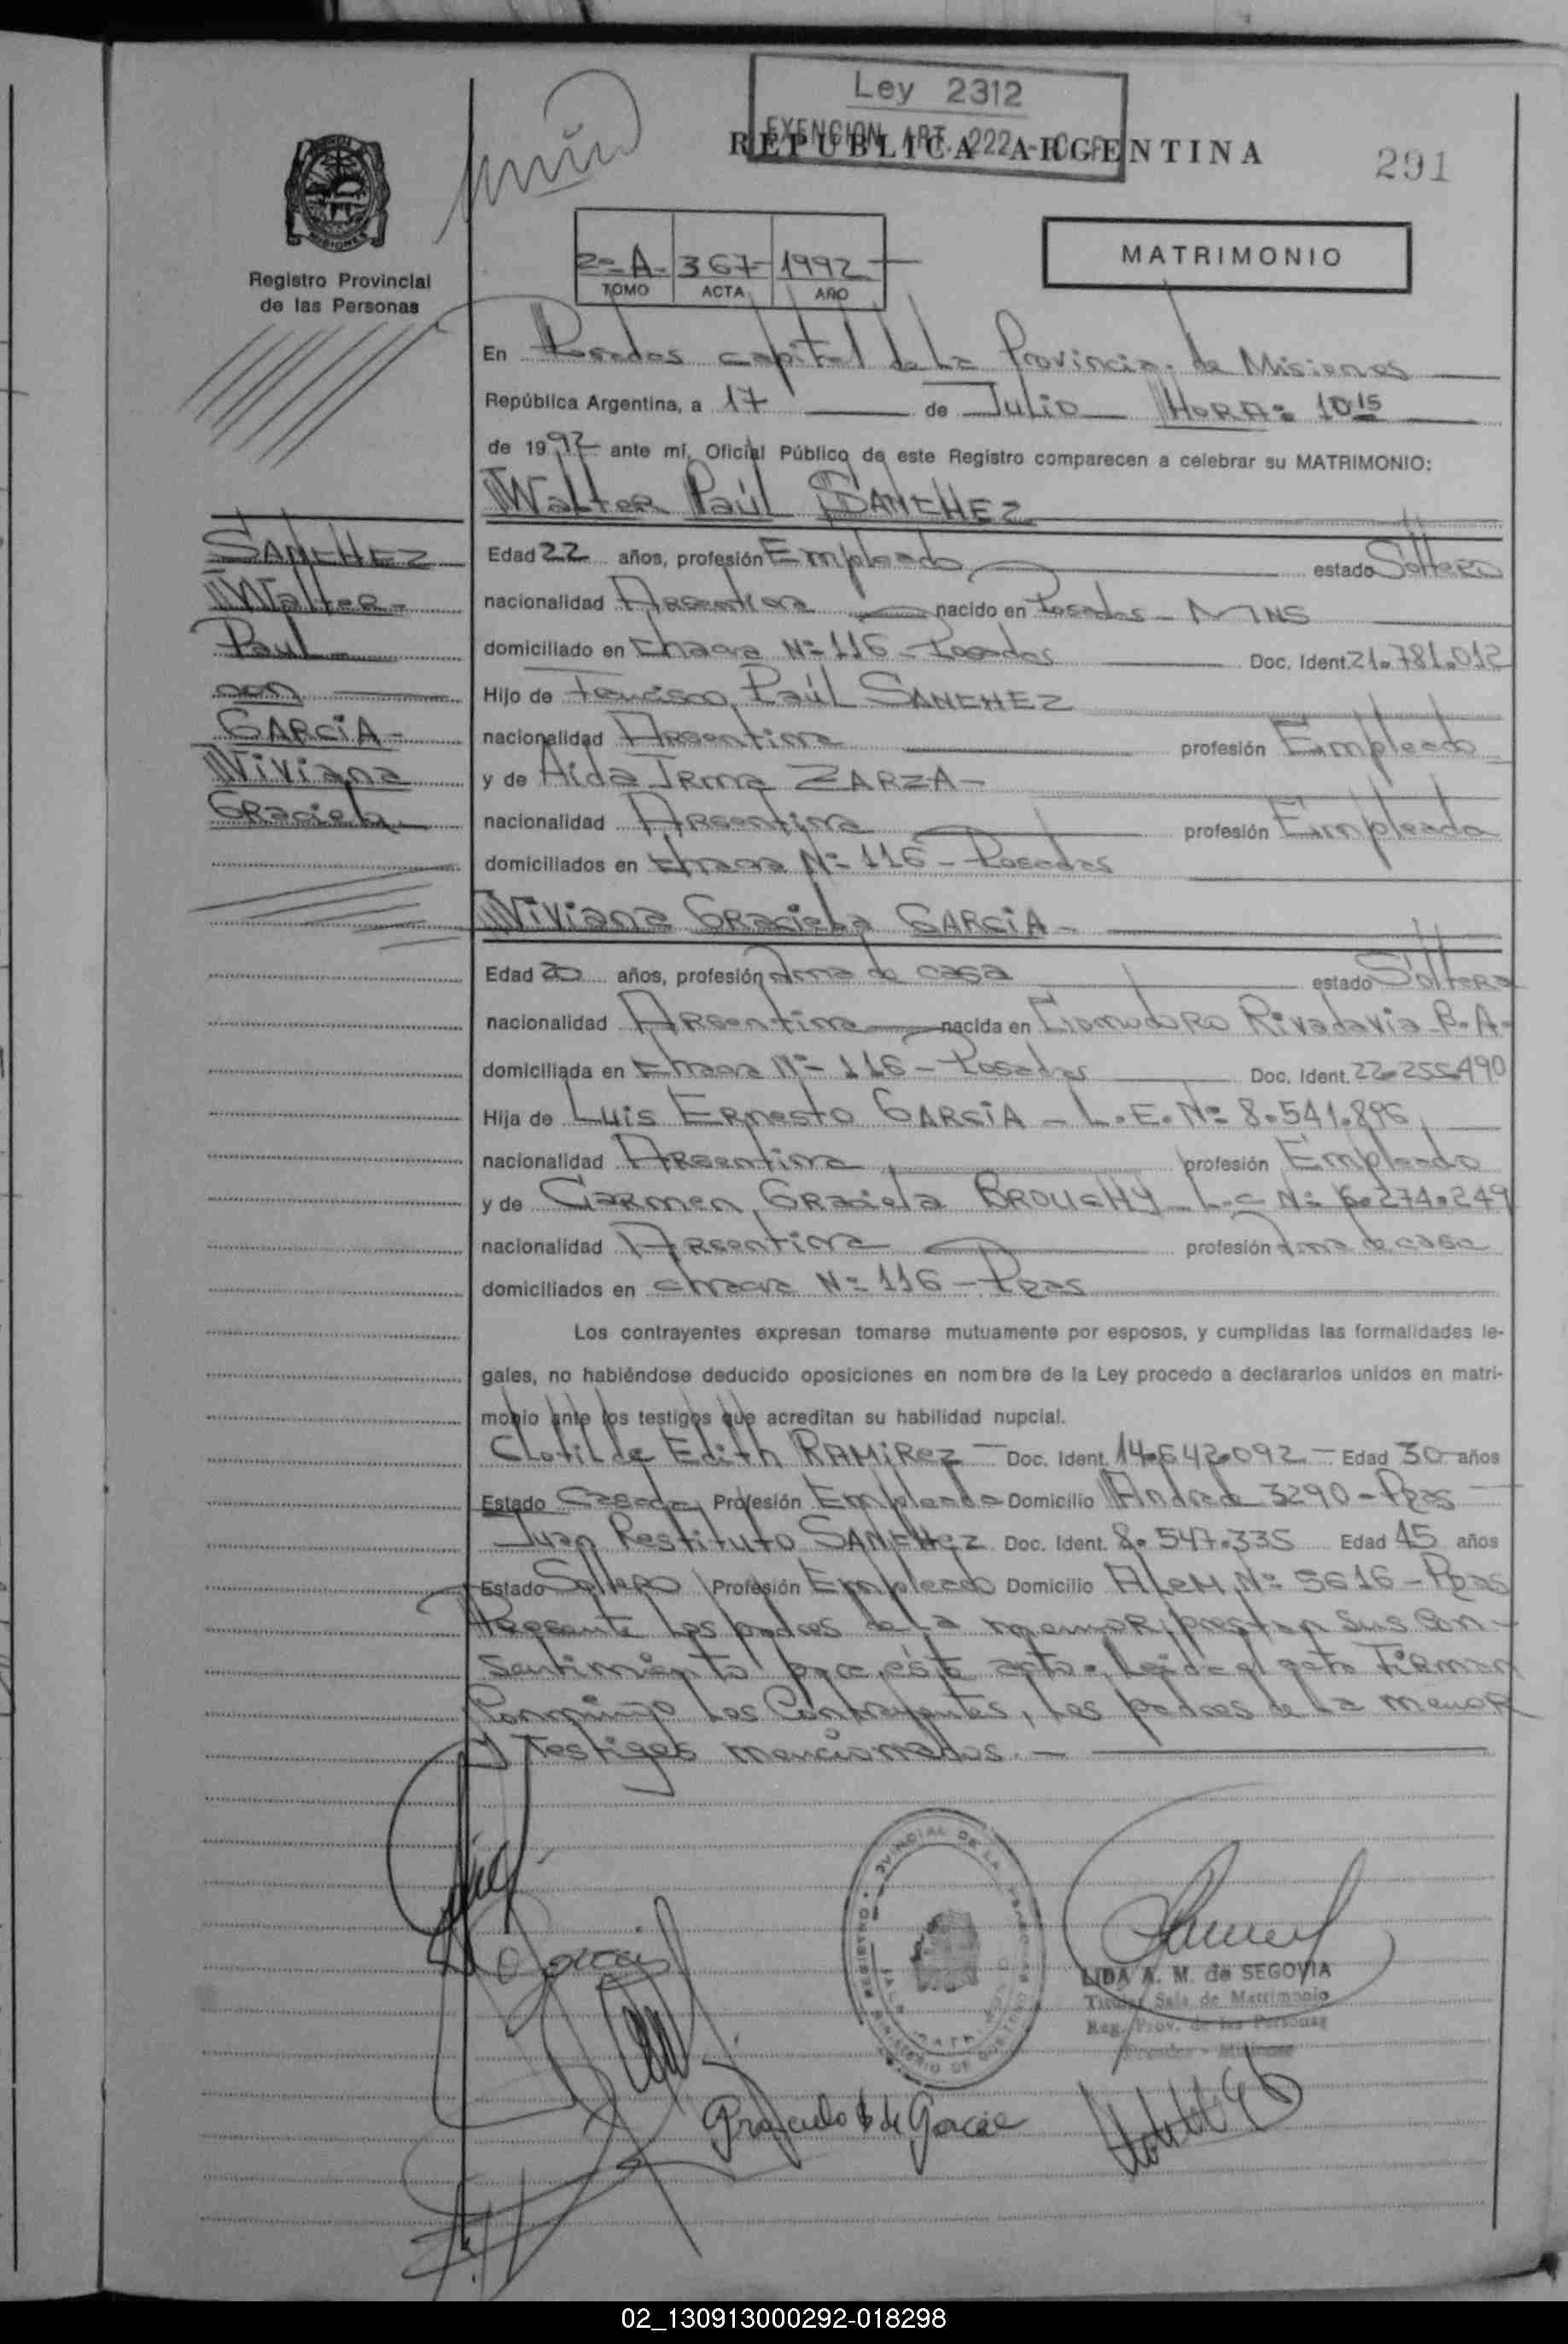 Ley 2312
EXENCION ART. 222
REPUBLICA ARGENTINA
291
MISIONES
Registro Provincial
de las Personas
2º-A- 367- 1992
TOMO ACTA AÑO
MATRIMONIO
En Posadas capital de la Provincia de Misiones
República Argentina, a 17 de Julio HORA: 10.15
de 1992 ante mí, Oficial Público de este Registro comparecen a celebrar su MATRIMONIO:
Walter Paúl SANCHEZ
SANCHEZ
Walter-
Paul
con
GARCIA-
Viviana
Graciela
Edad 22 años, profesión Empleado estado Soltero
nacionalidad Argentina nacido en Posadas - MNS
domiciliado en Chacra Nº 116 - Posadas Doc. Ident. 21.781.012
Hijo de Francisco Paúl SANCHEZ
nacionalidad Argentina profesión Empleado
y de Aida Irma ZARZA-
nacionalidad Argentina profesión Empleada
domiciliados en Chacra Nº 116 - Posadas
Viviana Graciela GARCIA-
Edad 20 años, profesión Ama de casa estado Soltera
nacionalidad Argentina nacida en Comodoro Rivadavia
domiciliada en Chacra Nº 116 - Posadas Doc. Ident. 22.255.490
Hija de Luis Ernesto GARCIA - L.E. Nº 8.541.896
nacionalidad Argentina profesión Empleado
y de Carmen Graciela BROUCHY L.C Nº 6.274.249
nacionalidad Argentina profesión Ama de casa
domiciliados en chacra Nº 116 - Pdas
Los contrayentes expresan tomarse mutuamente por esposos, y cumplidas las formalidades le-
gales, no habiéndose deducido oposiciones en nombre de la Ley procedo a declararlos unidos en matri-
monio ante los testigos que acreditan su habilidad nupcial.
Clotilde Edith RAMIREZ - Doc. Ident. 14.642.092 - Edad 30 años
Estado Casada Profesión Empleada Domicilio Andrade 3290 - Pdas
Juan Restituto SANCHEZ Doc. Ident. 8.547.335 Edad 45 años
Estado Soltero Profesión Empleado Domicilio ALEM Nº 5616 - Pdas
Presente los padres de la menor, prestan sus con-
sentimiento para éste acto. Leida el acta Firman
Conmigo Los Contrayentes, Los padres de La menor
y Testigos mencionados.-
LIDA A. M. de SEGOVIA
Titular Sala de Matrimonio
Reg. Prov. de las Personas
Posadas - Misiones
Graciela B de Garcia
02_130913000292-018298